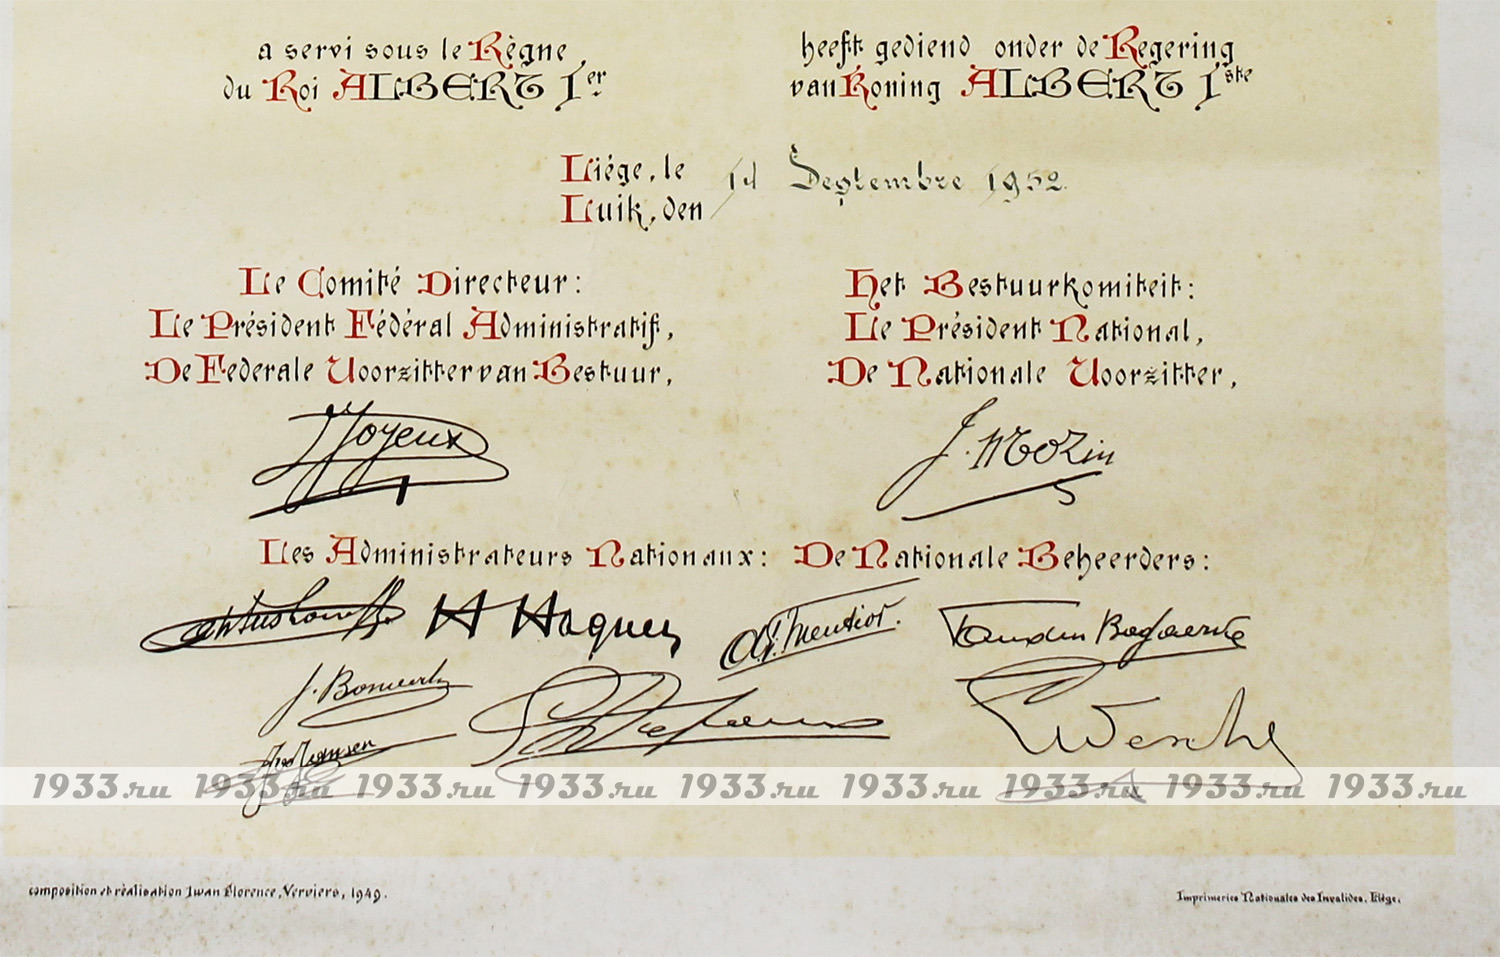 a servi sous le Règne
du Roi ALBERT Ier
heeft gediend onder de Regering
van Koning ALBERT Iste
Liége, le
Luik, den
14 Septembre 1952.
Le Comité Directeur:
Le Président Fédéral Administratif,
De Federale Voorzitter van Bestuur,
Het Bestuurkomiteit:
Le Président National,
De Nationale Voorzitter,
Joyeux
J. Mozin
Les Administrateurs Nationaux: De Nationale Beheerders:
1933.ru 1933.ru 1933.ru 1933.ru 1933.ru 1933.ru 1933.ru 1933.ru 1933.ru
composition et réalisation Iwan Florence, Verviers, 1949.
Imprimeries Nationales des Invalides. Liége.